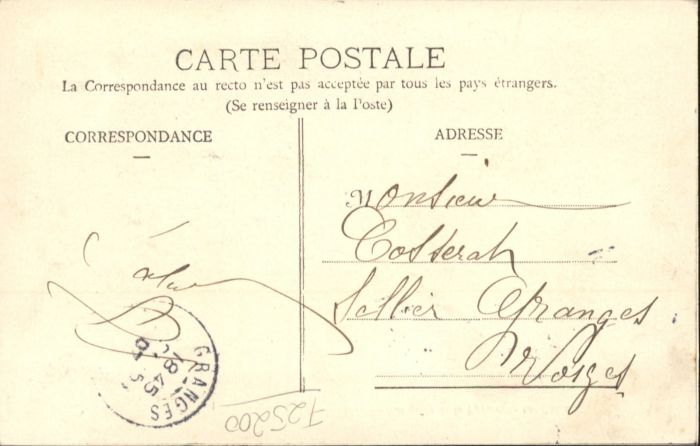 CARTE POSTALE
La Correspondance au recto n'est pas acceptée par tous les pays étrangers.
(Se renseigner à la Poste)
CORRESPONDANCE
ADRESSE
Monsieur
Cosserat
Sellier Granges
Vosges
GRANGES
725200